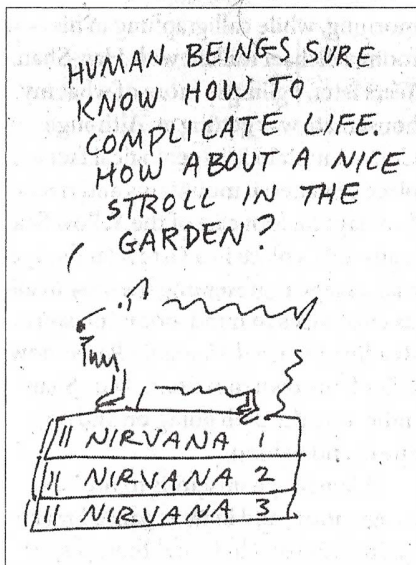 HUMAN BEINGS SURE
KNOW HOW TO
COMPLICATE LIFE.
HOW ABOUT A NICE
STROLL IN THE
GARDEN?
NIRVANA 1
NIRVANA 2
NIRVANA 3